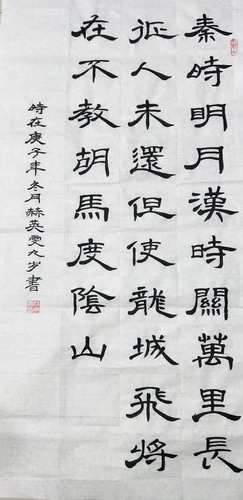 秦時明月漢時關萬里長
征人未還但使龍城飛將
在不教胡馬度陰山
時在庚子年冬月赫英雯九岁書